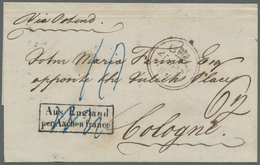 Via Ostend
John Maria Farina Esq
opposite the Julich Place
Aus England
per Aachen franco
Cologne